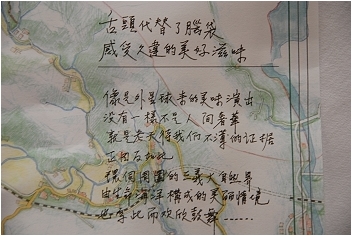 舌頭代替了腦袋
感受久違的美好滋味
像是外星球來的美味演出
沒有一樣不是人間奢華
就是老天待我們不薄的证据
正因為如此
環伺周圍的三義大自然界
由生命海洋構成的美丽情境
也為此而欢欣鼓舞……